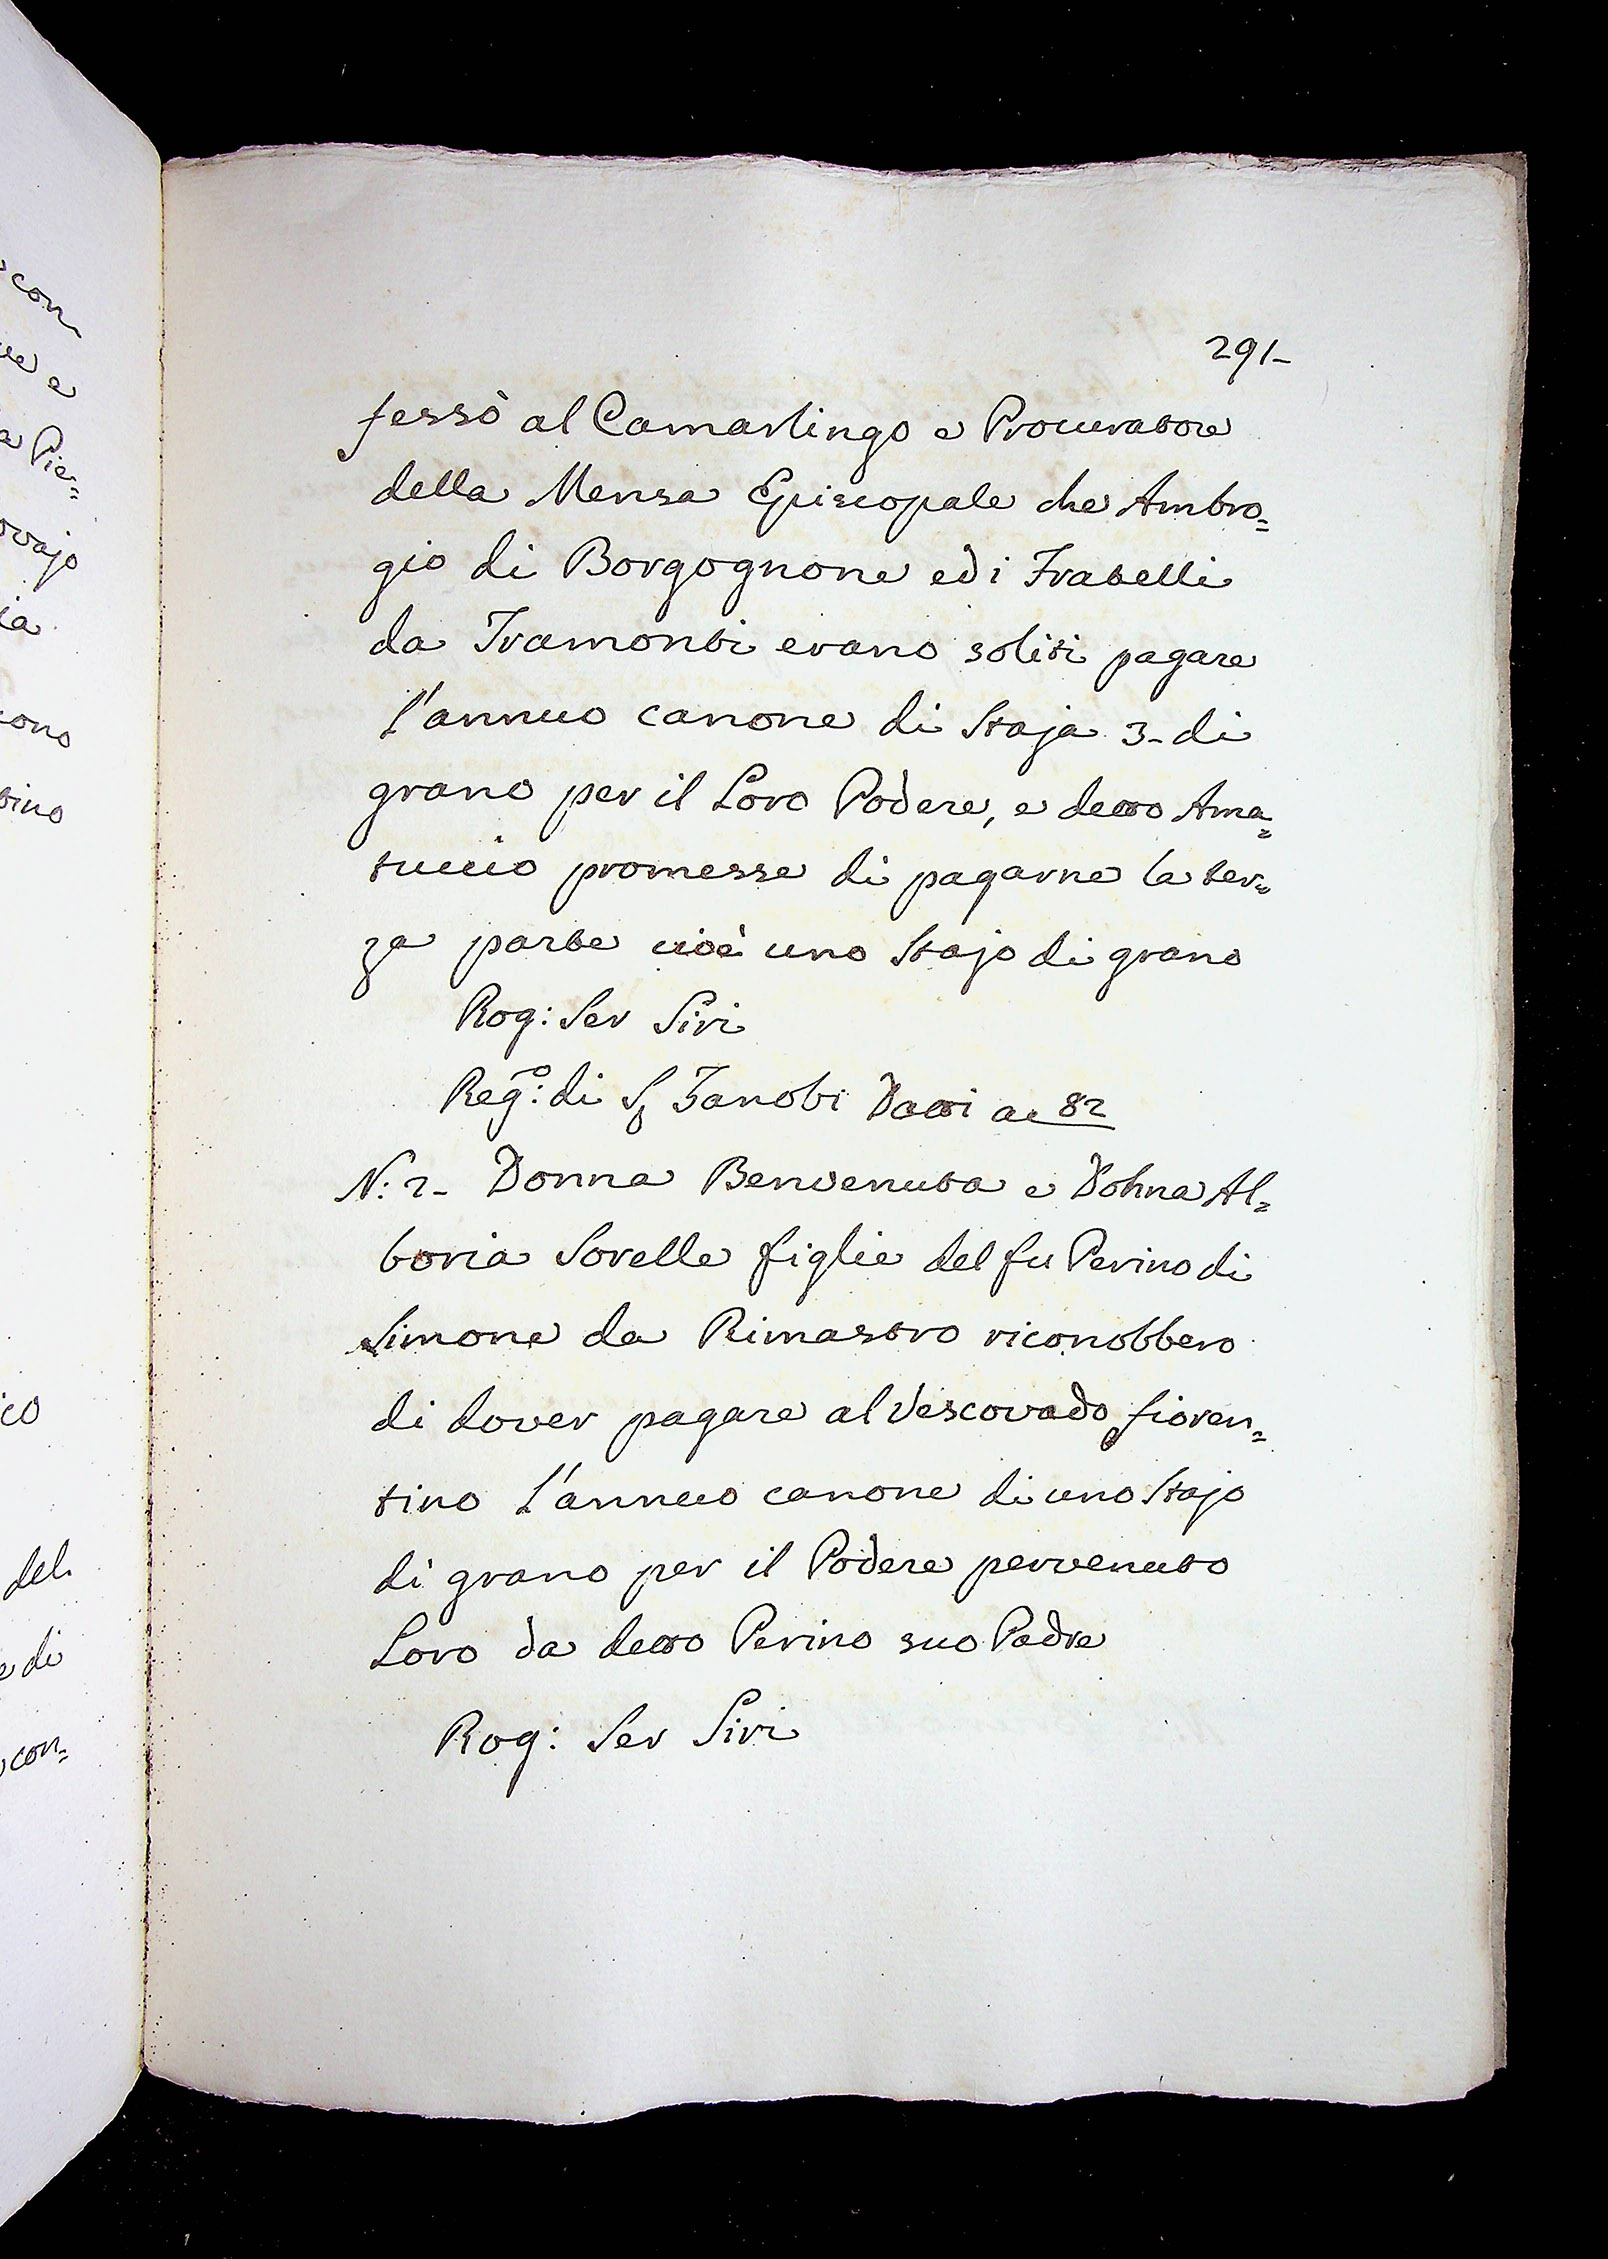 291-
fessò al Camarlingo e Procuratore
della Mensa Episcopale che Ambro=
gio di Borgognone ed i Fratelli
da Tramonti erano soliti pagare
l'annuo canone di Staja 3- di
grano per il Loro Podere, e detto Ama=
tuccio promesse di pagarne la ter=
za parte cioè uno Stajo di grano
Rog: Ser Siri
Reg.o: di S. Zanobi Datti a c 82
N: 2- Donna Benvenuta e Donna Al=
boria Sorelle figlie del fu Perino di
Simone da Rimastro riconobbero
di dover pagare al Vescovado fioren=
tino l'annuo canone di uno Stajo
di grano per il Podere pervenuto
Loro da detto Perino suo Padre
Rog: Ser Siri
con
e
Pie=
ovajo
ia
cono
tino
ico
del
e di
con=